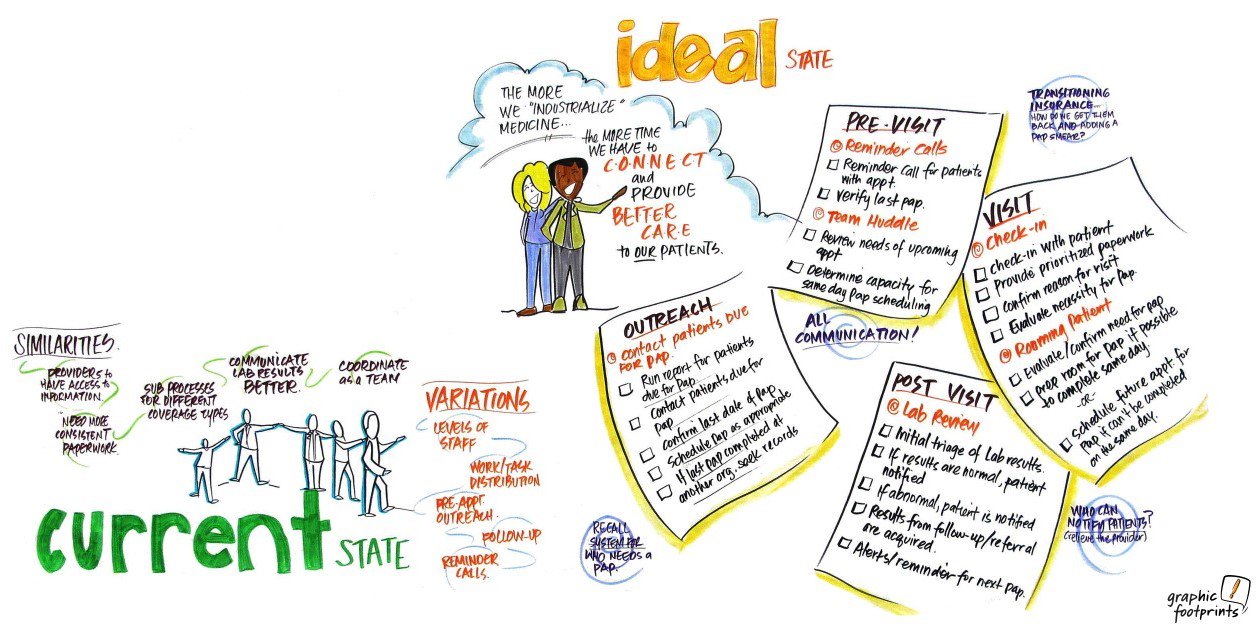 ideal STATE
THE MORE
WE "INDUSTRIALIZE"
MEDICINE...
the MORE TIME
WE HAVE to
C·O·N·N·E·C·T
and
PROVIDE
BETTER
C·A·R·E
to OUR PATIENTS.
PRE-VISIT
Reminder Calls
Reminder Call for patients
with appt.
Verify last pap.
Team Huddle
Review needs of upcoming
appt
Determine capacity for
same day pap scheduling
TRANSITIONING
INSURANCE...
HOW DO WE GET THEM
BACK AND ADDING A
PAP SMEAR?
VISIT
Check-in
Check-in with patient
Provide prioritized paperwork
Confirm reason for visit
Evaluate necessity for pap.
Rooming Patient
Evaluate/confirm need for pap
Prep room for pap if possible
to complete same day.
-OR-
Schedule future appt. for
pap if can't be completed
on the same day.
OUTREACH
Contact patients DUE
FOR PAP.
Run report for patients
due for Pap.
Contact patients due for
Pap
Confirm last date of Pap
Schedule Pap as appropriate
If last pap completed at
another org. seek records
ALL
COMMUNICATION!
POST VISIT
Lab Review
Initial triage of Lab results.
If results are normal, patient
notified
If abnormal, patient is notified
Results from follow-up/referral
are acquired.
Alerts/reminder for next pap.
WHO CAN
NOTIFY PATIENTS?
(relieve the provider)
RECALL
SYSTEM FOR
WHO NEEDS A
PAP.
SIMILARITIES.
PROVIDERS to
HAVE ACCESS to
INFORMATION.
NEED MORE
CONSISTENT
PAPERWORK
SUB PROCESSES
FOR DIFFERENT
COVERAGE TYPES
COMMUNICATE
LAB RESULTS
BETTER.
COORDINATE
as a TEAM
VARIATIONS
LEVELS OF
STAFF
WORK/TASK
DISTRIBUTION
PRE-APPT.
OUTREACH.
FOLLOW-UP
REMINDER
CALLS.
current STATE
graphic
footprints